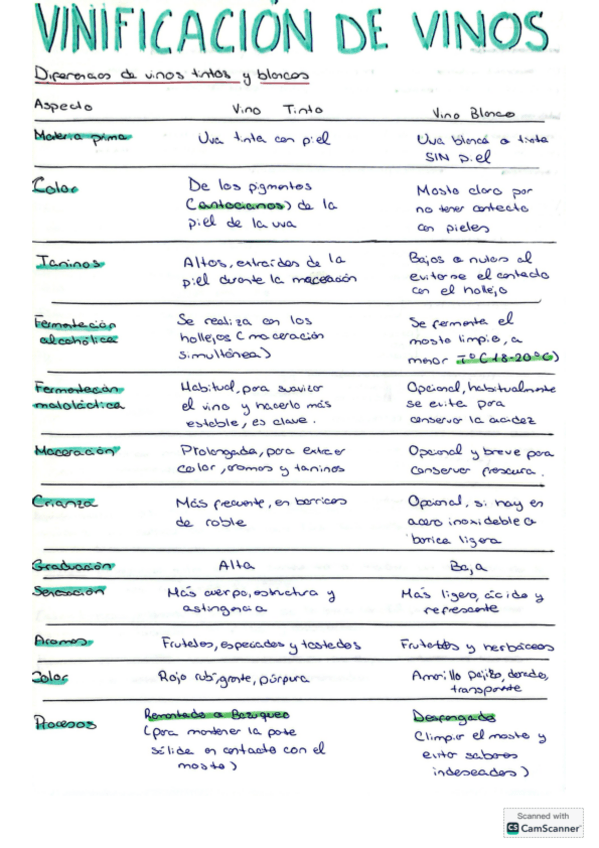 VINIFICACIÓN DE VINOS
Diferencias de vinos tintos y blancos
Aspecto Vino Tinto Vino Blanco
Materia prima Uva tinta con piel Uva blanca o tinta
SIN piel
Color De los pigmentos Mosto claro por
(antocianos) de la no tener contacto
piel de la uva con pieles
Taninos Altos, extraídos de la Bajos o nulos al
piel durante la maceración evitarse el contacto
con el hollejo
Fermentación Se realiza con los Se fermenta el
alcohólica hollejos (maceración mosto limpio, a
simultánea) menor Tº (18-20ºC)
Fermentación Habitual, para suavizar Opcional, habitualmente
maloláctica el vino y hacerlo más se evita para
estable, es clave. conservar la acidez
Maceración Prolongada, para extraer Opcional y breve para
color, aromas y taninos conservar frescura.
Crianza Más frecuente, en barricas Opcional, si hay en
de roble acero inoxidable o
barrica ligera
Graduación Alta Baja
Sensación Más cuerpo, estructura y Más ligero, ácido y
astingencia refrescante
Aromas Frutales, especiados y tostados Frutales y herbáceos
Color Rojo rubí, granate, púrpura Amarillo pajizo, dorado,
transparente
Procesos Remontado o Bazuqueo Desfangado
(para mantener la parte (limpiar el mosto y
sólida en contacto con el evitar sabores
mosto) indeseados)
Scanned with
CS CamScanner